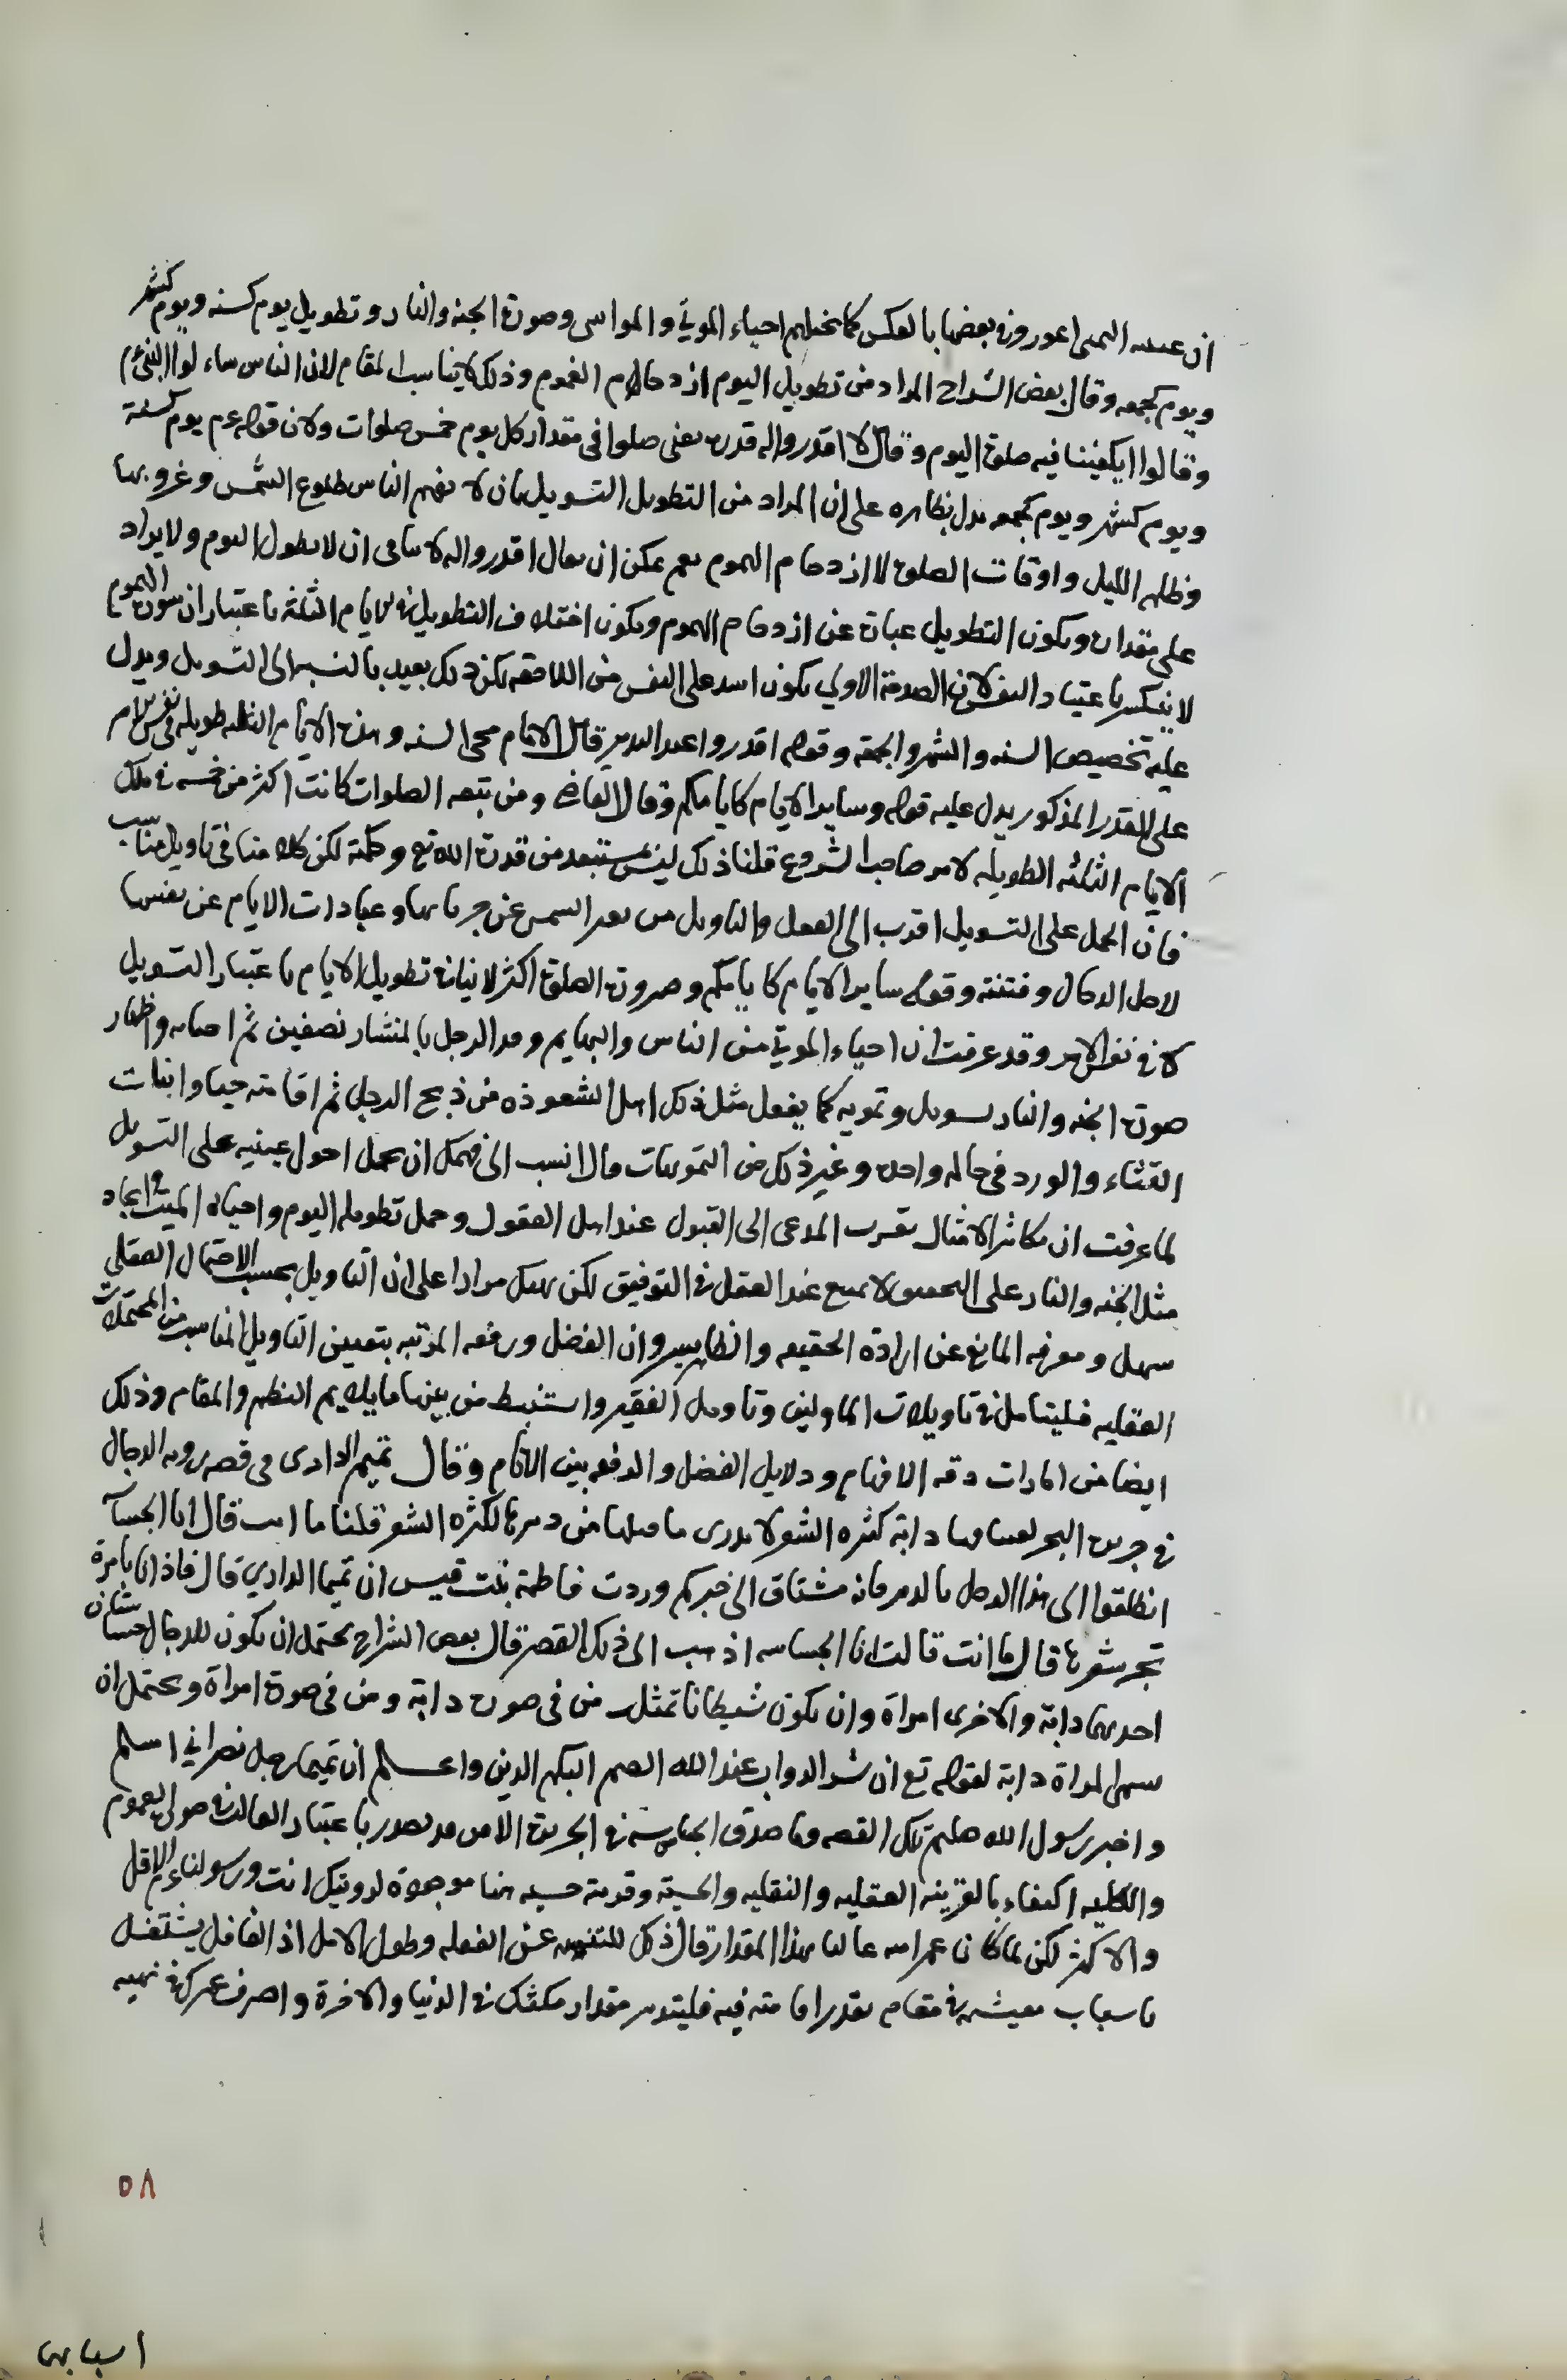 ان عينه اليمنى اعور وفي بعضها بالعكس كما تخيلهم احياء الموتي والمواسي وصورة الجنة والنار وتطويل يوم كسنه ويوم كشهر
ويوم كجمعه وقال بعض الشراح المراد من تطويل اليوم ازدحام الغموم وذلك لا يناسب المقام لان الناس ساءلوا النبي عم
وقالوا ايكفينا فيه صلوة اليوم وقال لا اقدروا له قدره يعني صلوا في مقدار كل يوم خمس صلوات ولان قوله عم يوم كسنة
ويوم كشهر ويوم كجمعه يدل بظاهره على ان المراد من التطويل التسويل بان لا يفهم الناس طلوع الشمس وغروبها
وظلمه الليل واوقات الصلوة لا ازدحام الهموم نعم يمكن ان يقال اقدروا له لا ينافي ان لا يطول اليوم ولا يراد
على مقداره ويكون التطويل عبارة عن ازدحام الهموم ويكون اختلاف التطويل في الايام الثلثة باعتبار ان سورة الهموم
لا ينكسر باعتياد النفس لان الصدمة الاولي يكون اشد على النفس من اللاحقه لكن ذلك بعيد بالنسبه الى التسويل ويدل
عليه تخصيص السنه والشهر والجمعة وقوله اقدروا قال الامام محي السنه وهذه الايام الثلثه طويله في نفس الامر
على القدر المذكور يدل عليه قوله وساير الايام كايامكم وقال القاضي ومن تتمه الصلوات كانت اكثر من خمسه في تلك
الايام الثلثه الطويله لامر صاحب الشروع قلنا ذلك ليس بمستبعد من قدرة الله تع وحكمته لكن كلامنا في تاويل مناسب
فان الحمل على التسويل اقرب الى العقل والتاويل من بعد الشمس عن جريانها وعبادات الايام عن نفسها
لاجل الدجال وفتنته وقوله ساير الايام كايامكم وصرورة الصلوة اكثر لا ينافي تطويل الايام باعتبار التسويل
لا في نفس الامر وقد عرفت ان احياء الموتي من الناس والبهايم وقد الرجل بالمنشار نصفين ثم احياءه واظهار
صورة الجنه والنار تسويل وتمويه كما يفعل مثل ذلك اهل الشعوذه من ذبح الرجل ثم اقامته حيا وانبات
القثاء والورد في حاله واحده وغير ذلك من التمويهات فالانسب ان يحمل احول عينيه على التسويل
لما عرفت ان تكاثر الامثال يقرب المدعي الى القبول عند اهل العقول وحمل تطويله اليوم واحياءه الميت وايجاد
مثل الجنه والنار على التحقيق لا يمتنع عند العقل في التوفيق لكن ليس مرادا على ان التاويل بحسب الاحتمال العقلي
سهل ومعرفه المانع عن ارادة الحقيقه والظاهر يسير وان الفضل ورفعه المرتبه بتعيين التاويل المناسب من المحتملات
العقليه فليتامل في تاويلات الماولين وتاويل الفقير واستنبط من بينها ما يلايم النظم والمقام وذلك
ايضا من امارات دقه الافهام ودلايل الفضل والرفعه بين الانام وقال تميم الداري في قصه رويه الدجال
في جزيرة البحر لقينا دابة كثره الشعر لا يدرى ما قبلها من دبرها لكثره الشعر قلنا ما انت قال انا الجساسة
انطلقوا الى هذا الرجل بالدير فانه مشتاق الى خبركم وردت فاطمة بنت قيس ان تميما الداري قال فاذا انا بامرة
تجر شعرها قال ما انت قالت انا الجساسه اذهب الى ذلك القصر قال بعض الشراح يحتمل ان يكون للدجال جساستان
احديهما دابة والاخرى امراة وان يكون شيطانا تمثل من في صورة دابة ومن في صورة امراة ويحتمل انه
سمى المراة دابة لقوله تع ان شر الدواب عند الله الصم البكم الذين واعلم ان تميما رجل نصراني اسلم
واخبر رسول الله صلعم تلك القصه وما صدق الجساسه في الجزيرة الا من مد يصدر باعتبار الغالب في صورة العموم
والكليه اكتفاء بالقرينه العقليه والنقليه والحسيه وقرينة حسيه هنا موجوده لرويتك انت ورسولنا عم الاقل
والاكثر لكن لما كان عمر امته غالبا بهذا المقدار قال ذلك للتنبيه عن الغفله وطول الامل اذ الغافل يشتغل
باسباب معيشه في مقام بقدر اقامته فيه فليتدبر مقدار مكثك في الدنيا والاخرة واصرف عمرك في تهيه
٥٨
اسبابها